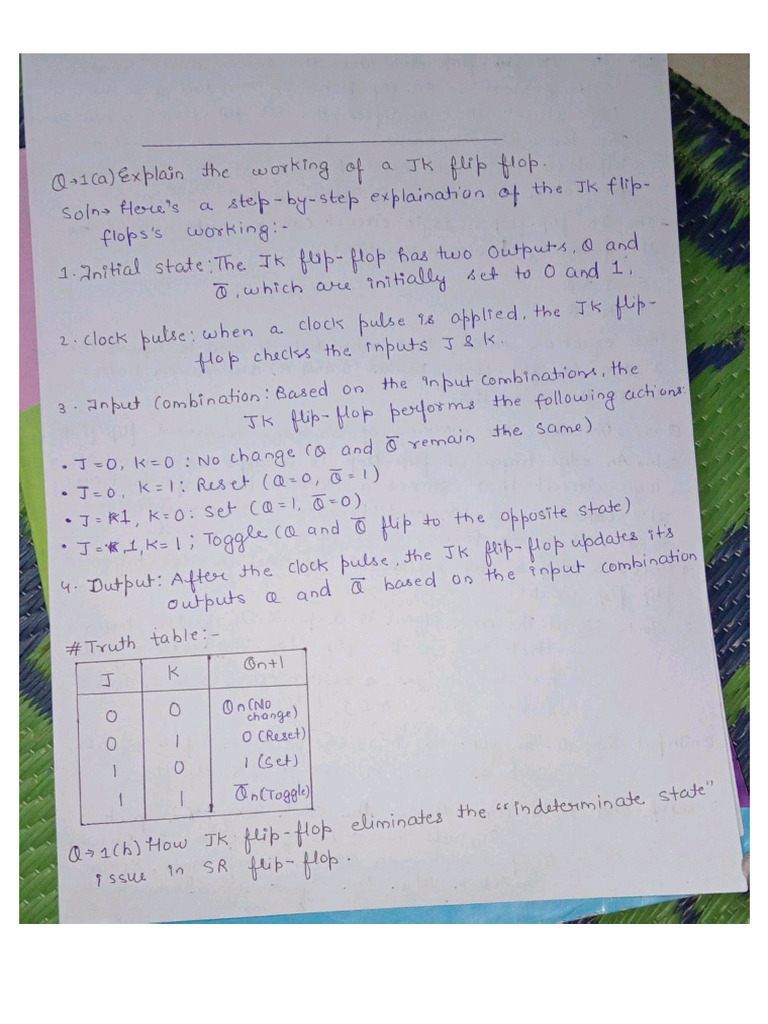 Q→1(a) Explain the working of a JK flip flop.
Soln→ Here's a step-by-step explaination of the JK flip-
flops's working:-
1. Initial state: The JK flip-flop has two outputs, Q and
Q̅, which are initially set to 0 and 1.
2. Clock pulse: when a clock pulse is applied, the JK flip-
flop checks the inputs J & K.
3. Input Combination: Based on the input combinations, the
JK flip-flop performs the following actions:
• J=0, K=0: No change (Q and Q̅ remain the same)
• J=0, K=1: Reset (Q=0, Q̅=1)
• J=1, K=0: Set (Q=1, Q̅=0)
• J=1, K=1; Toggle (Q and Q̅ flip to the opposite state)
4. Output: After the clock pulse, the JK flip-flop updates it's
outputs Q and Q̅ based on the input combination
# Truth table:-
J K Qn+1
0 0 Qn (No
change)
0 1 0 (Reset)
1 0 1 (Set)
1 1 Q̅n (Toggle)
Q→1(b) How JK flip-flop eliminates the "indeterminate state"
issue in SR flip-flop.